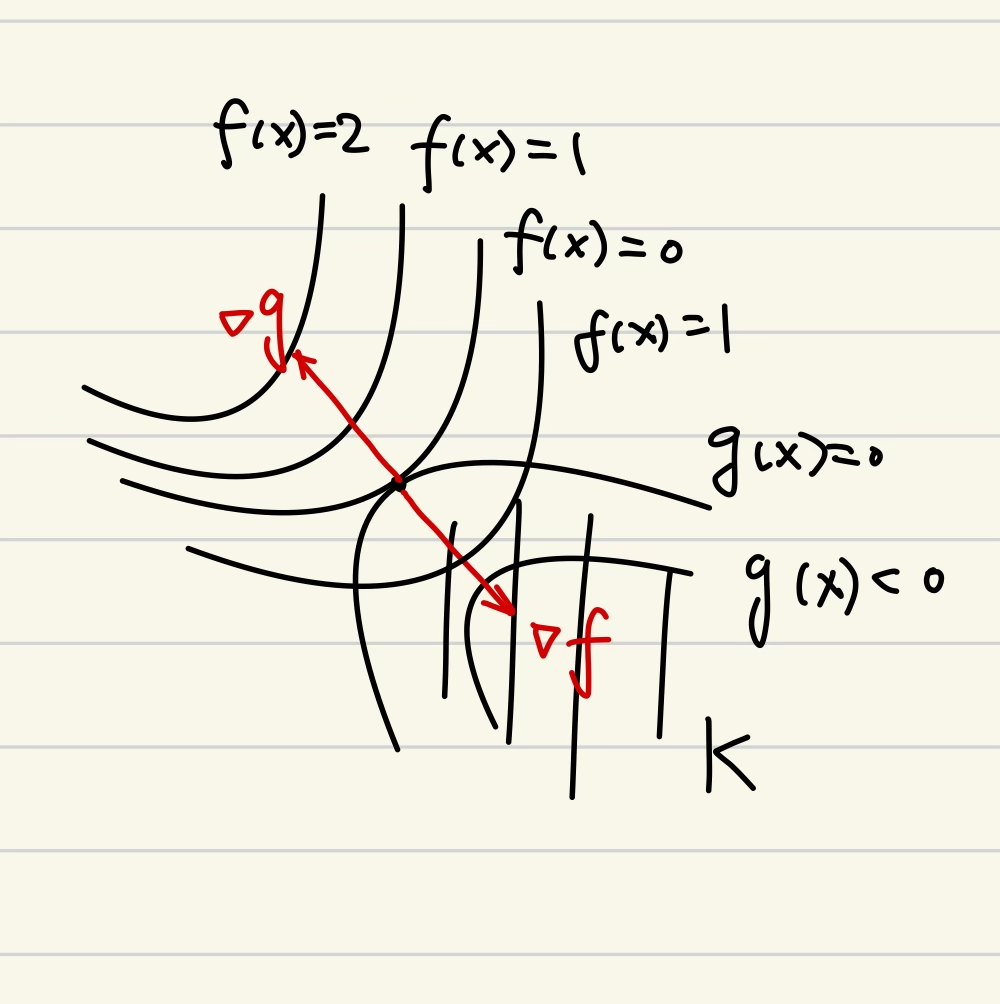 f(x)=2 f(x)=1
f(x)=0
∇g
f(x)=1
g(x)=0
g(x)<0
∇f
K